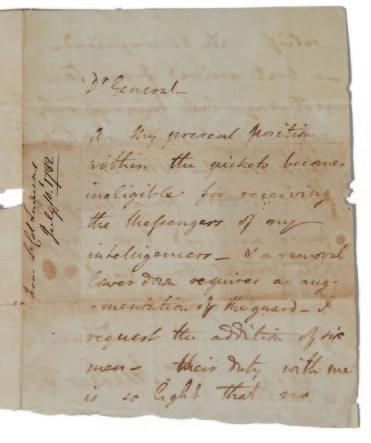 Dr General
My present position
within the pickets becomes
ineligible for receiving
the Messengers of my
intelligencers — & a removal
lower down requires an aug-
-mentation of the guard — I
request the addition of six
men — their duty with me
is so light that no
from Lt Col Laurens
July 1782